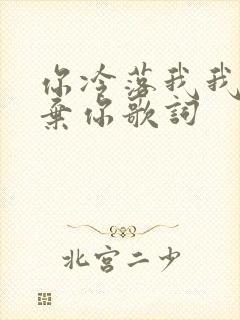 你冷落我我
棄你歌詞
北宮二少